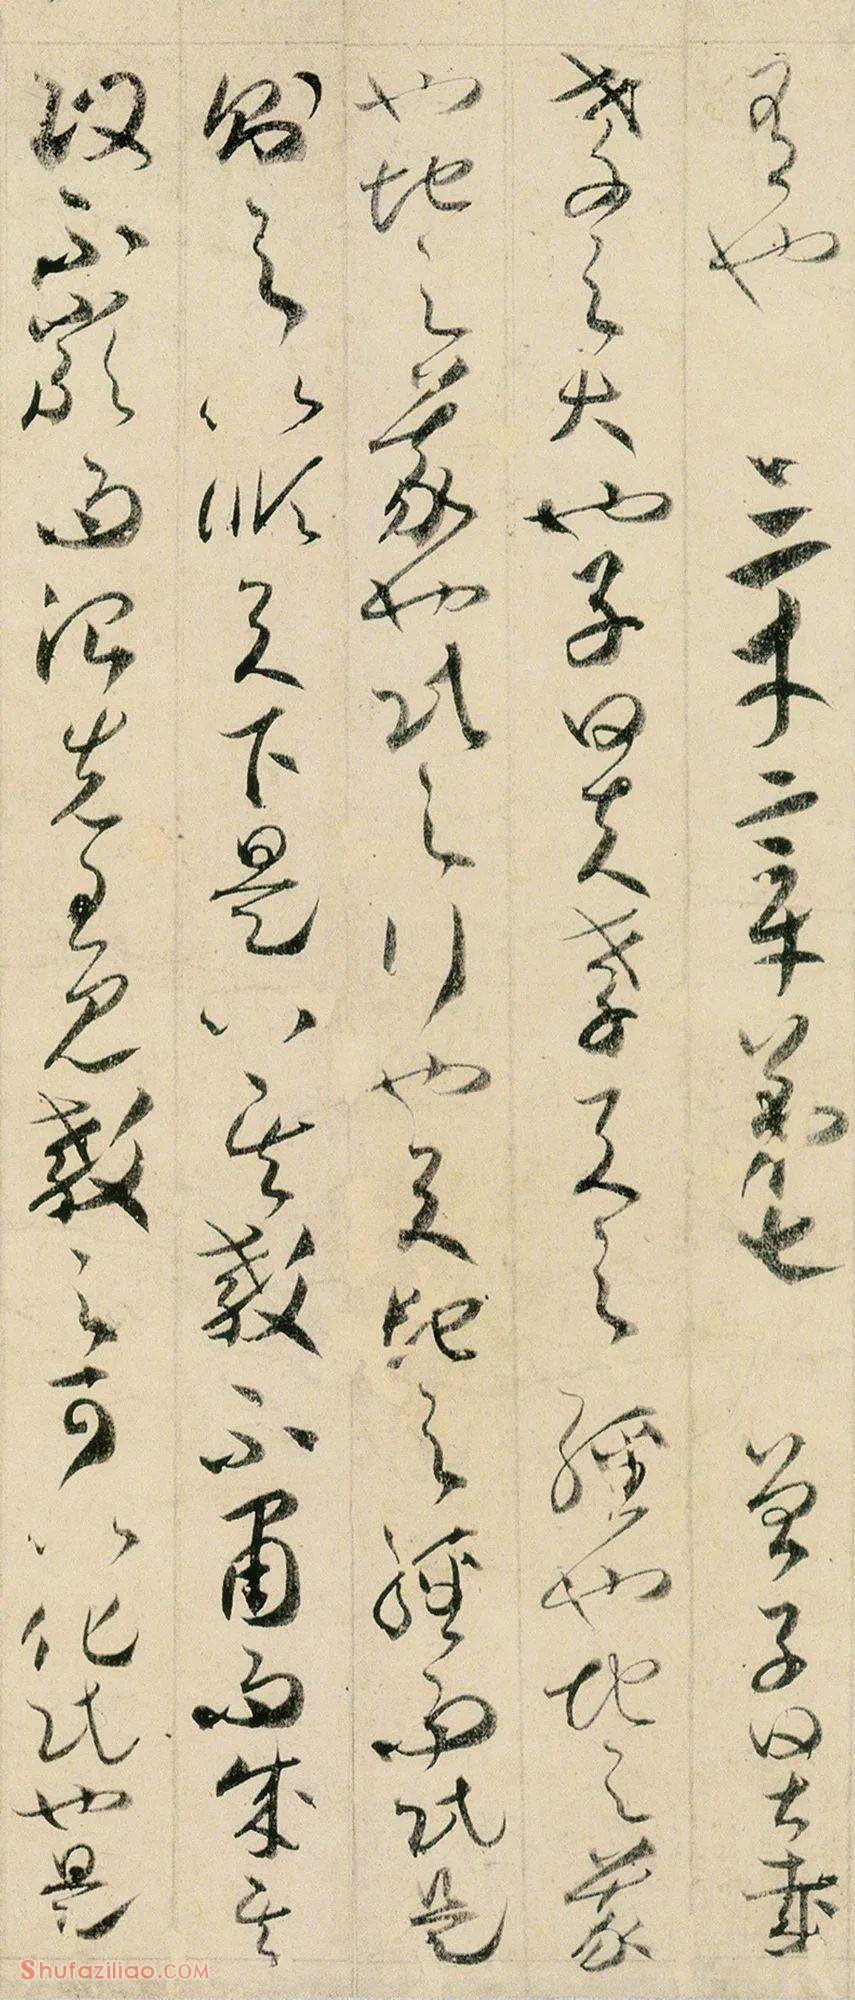 有也　三才章第七　曾子曰甚哉
孝之大也子曰夫孝天之經也地之義
也地之義也民之行也天地之經而民是
則之以順天下是以其教不肅而成其
政不嚴而治先王見教之可以化民也是
Shufaziliao.COM